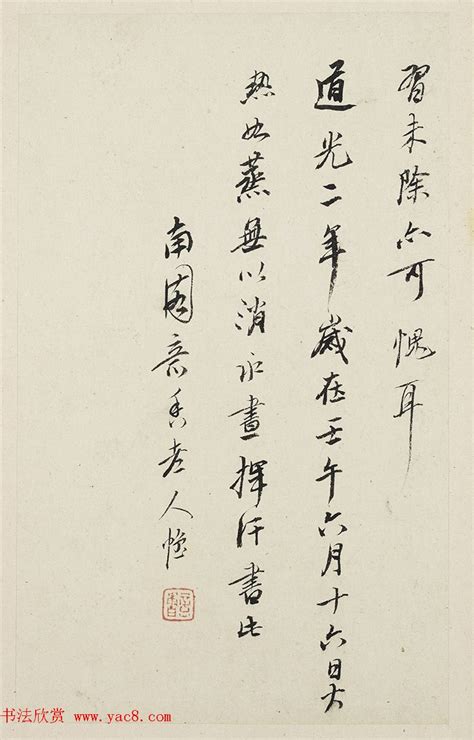 習未除亦可愧耳
道光二年歲在壬午六月十六日大
熱如蒸無以消永晝揮汗書此
南園老人愷
书法欣赏 www.yac8.com